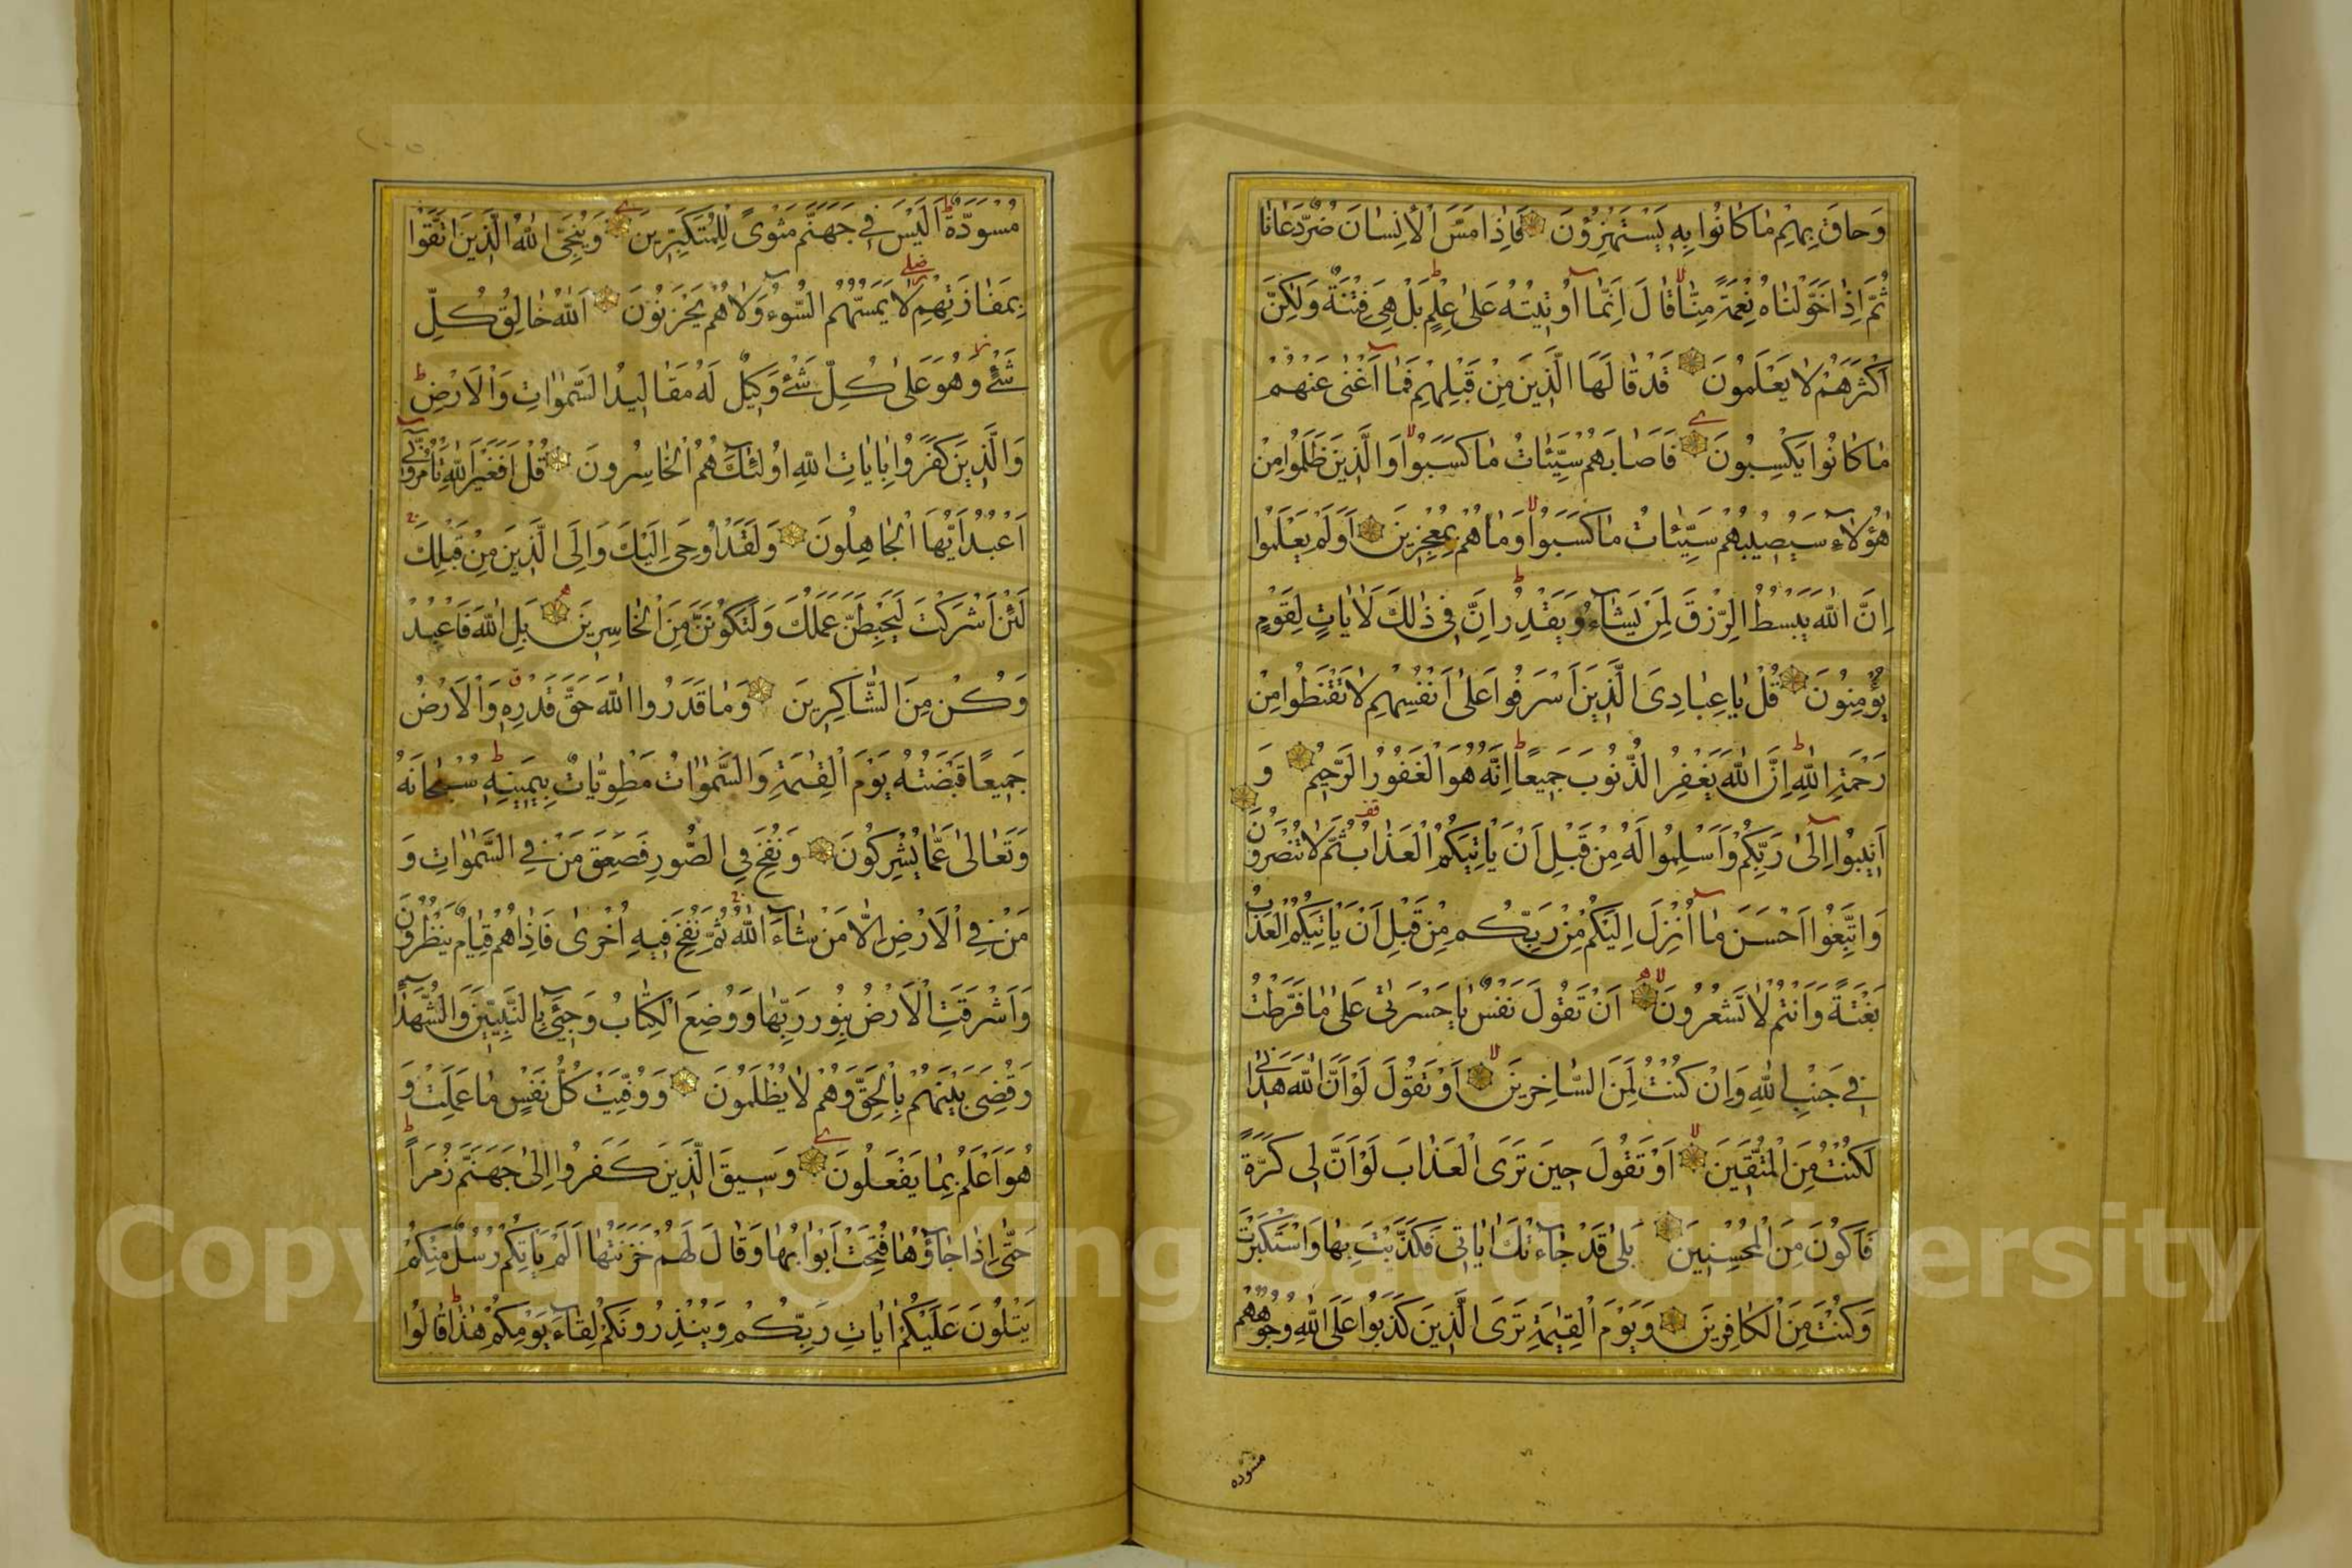 وَحَاقَ بِهِمْ مَا كَانُوا بِهِ يَسْتَهْزِؤُنَ فَاِذَا مَسَّ الْاِنْسَانَ ضُرٌّ دَعَانَا
ثُمَّ اِذَا خَوَّلْنَاهُ نِعْمَةً مِنَّا قَالَ اِنَّمَا اُوتِيتُهُ عَلٰى عِلْمٍ بَلْ هِيَ فِتْنَةٌ وَلٰكِنَّ
اَكْثَرَهُمْ لَا يَعْلَمُونَ قَدْ قَالَهَا الَّذِينَ مِنْ قَبْلِهِمْ فَمَا اَغْنٰى عَنْهُمْ
مَا كَانُوا يَكْسِبُونَ فَاَصَابَهُمْ سَيِّئَاتُ مَا كَسَبُوا وَالَّذِينَ ظَلَمُوا مِنْ
هٰؤُلَاءِ سَيُصِيبُهُمْ سَيِّئَاتُ مَا كَسَبُوا وَمَا هُمْ بِمُعْجِزِينَ اَوَلَمْ يَعْلَمُوا
اِنَّ اللّٰهَ يَبْسُطُ الرِّزْقَ لِمَنْ يَشَاءُ وَيَقْدِرُ اِنَّ فِي ذٰلِكَ لَاٰيَاتٍ لِقَوْمٍ
يُؤْمِنُونَ قُلْ يَا عِبَادِيَ الَّذِينَ اَسْرَفُوا عَلٰى اَنْفُسِهِمْ لَا تَقْنَطُوا مِنْ
رَحْمَةِ اللّٰهِ اِنَّ اللّٰهَ يَغْفِرُ الذُّنُوبَ جَمِيعًا اِنَّهُ هُوَ الْغَفُورُ الرَّحِيمُ وَ
اَنِيبُوا اِلٰى رَبِّكُمْ وَاَسْلِمُوا لَهُ مِنْ قَبْلِ اَنْ يَاْتِيَكُمُ الْعَذَابُ ثُمَّ لَا تُنْصَرُونَ
وَاتَّبِعُوا اَحْسَنَ مَا اُنْزِلَ اِلَيْكُمْ مِنْ رَبِّكُمْ مِنْ قَبْلِ اَنْ يَاْتِيَكُمُ الْعَذَابُ
بَغْتَةً وَاَنْتُمْ لَا تَشْعُرُونَ اَنْ تَقُولَ نَفْسٌ يَا حَسْرَتٰى عَلٰى مَا فَرَّطْتُ
فِي جَنْبِ اللّٰهِ وَاِنْ كُنْتُ لَمِنَ السَّاخِرِينَ اَوْ تَقُولَ لَوْ اَنَّ اللّٰهَ هَدٰينِي
لَكُنْتُ مِنَ الْمُتَّقِينَ اَوْ تَقُولَ حِينَ تَرَى الْعَذَابَ لَوْ اَنَّ لِي كَرَّةً
فَاَكُونَ مِنَ الْمُحْسِنِينَ بَلٰى قَدْ جَاءَتْكَ اٰيَاتِي فَكَذَّبْتَ بِهَا وَاسْتَكْبَرْتَ
وَكُنْتَ مِنَ الْكَافِرِينَ وَيَوْمَ الْقِيٰمَةِ تَرَى الَّذِينَ كَذَبُوا عَلَى اللّٰهِ وُجُوهُهُمْ
مسوده
مُسْوَدَّةٌ اَلَيْسَ فِي جَهَنَّمَ مَثْوًى لِلْمُتَكَبِّرِينَ وَيُنَجِّى اللّٰهُ الَّذِينَ اتَّقَوْا
بِمَفَازَتِهِمْ لَا يَمَسُّهُمُ السُّوءُ وَلَا هُمْ يَحْزَنُونَ اَللّٰهُ خَالِقُ كُلِّ
شَيْءٍ وَهُوَ عَلٰى كُلِّ شَيْءٍ وَكِيلٌ لَهُ مَقَالِيدُ السَّمٰوَاتِ وَالْاَرْضِ
وَالَّذِينَ كَفَرُوا بِاٰيَاتِ اللّٰهِ اُولٰئِكَ هُمُ الْخَاسِرُونَ قُلْ اَفَغَيْرَ اللّٰهِ تَاْمُرُوٓنِّي
اَعْبُدُ اَيُّهَا الْجَاهِلُونَ وَلَقَدْ اُوحِيَ اِلَيْكَ وَاِلَى الَّذِينَ مِنْ قَبْلِكَ
لَئِنْ اَشْرَكْتَ لَيَحْبَطَنَّ عَمَلُكَ وَلَتَكُونَنَّ مِنَ الْخَاسِرِينَ بَلِ اللّٰهَ فَاعْبُدْ
وَكُنْ مِنَ الشَّاكِرِينَ وَمَا قَدَرُوا اللّٰهَ حَقَّ قَدْرِهِ وَالْاَرْضُ
جَمِيعًا قَبْضَتُهُ يَوْمَ الْقِيٰمَةِ وَالسَّمٰوَاتُ مَطْوِيَّاتٌ بِيَمِينِهِ سُبْحَانَهُ
وَتَعَالٰى عَمَّا يُشْرِكُونَ وَنُفِخَ فِي الصُّورِ فَصَعِقَ مَنْ فِي السَّمٰوَاتِ وَ
مَنْ فِي الْاَرْضِ اِلَّا مَنْ شَاءَ اللّٰهُ ثُمَّ نُفِخَ فِيهِ اُخْرٰى فَاِذَا هُمْ قِيَامٌ يَنْظُرُونَ
وَاَشْرَقَتِ الْاَرْضُ بِنُورِ رَبِّهَا وَوُضِعَ الْكِتَابُ وَجِيءَ بِالنَّبِيِّينَ وَالشُّهَدَاءِ
وَقُضِيَ بَيْنَهُمْ بِالْحَقِّ وَهُمْ لَا يُظْلَمُونَ وَوُفِّيَتْ كُلُّ نَفْسٍ مَا عَمِلَتْ وَ
هُوَ اَعْلَمُ بِمَا يَفْعَلُونَ وَسِيقَ الَّذِينَ كَفَرُوا اِلٰى جَهَنَّمَ زُمَرًا
حَتّٰى اِذَا جَاؤُهَا فُتِحَتْ اَبْوَابُهَا وَقَالَ لَهُمْ خَزَنَتُهَا اَلَمْ يَاْتِكُمْ رُسُلٌ مِنْكُمْ
يَتْلُونَ عَلَيْكُمْ اٰيَاتِ رَبِّكُمْ وَيُنْذِرُونَكُمْ لِقَاءَ يَوْمِكُمْ هٰذَا قَالُوا
Copyright © King Saud University